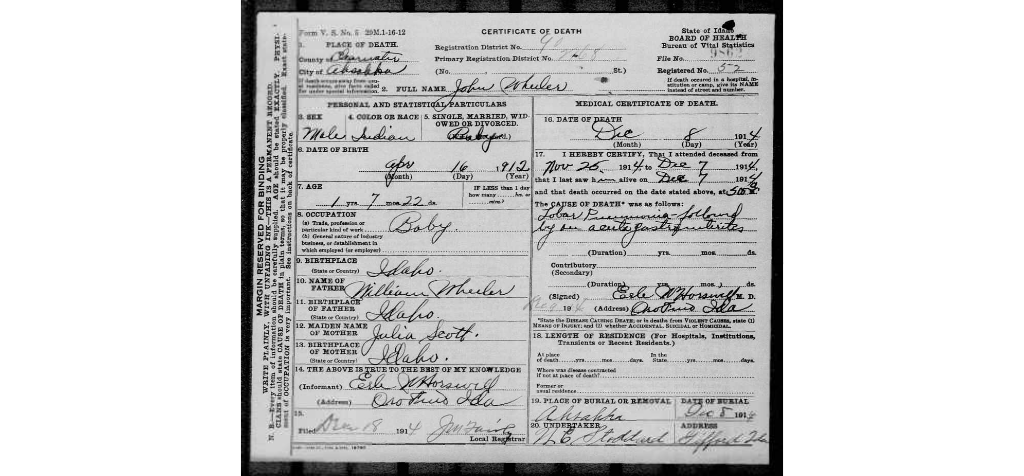 Form V. S. No. 5 20M.1-16-12
CERTIFICATE OF DEATH
State of Idaho
BOARD OF HEALTH
Bureau of Vital Statistics
1. PLACE OF DEATH.
Registration District No.
County of Clearwater
Primary Registration District No.
File No.
City of Ahsahka
(No. St.)
Registered No. 52
If death occurs away from
under special information.
If death occurred in a hospital,
institution or camp, give its NAME
instead of street and number.
2. FULL NAME John Wheeler
PERSONAL AND STATISTICAL PARTICULARS
3. SEX
Male
4. COLOR OR RACE
Indian
5. SINGLE, MARRIED, WIDOWED OR DIVORCED.
Baby
6. DATE OF BIRTH
Apr 16 1912
(Month) (Day) (Year)
7. AGE
1 yrs. 7 mos. 22 ds.
IF LESS than 1 day
how many hrs. or
mins.?
8. OCCUPATION
(a) Trade, profession or
particular kind of work
(b) General nature of industry
business, or establishment in
which employed (or employer)
Baby.
9. BIRTHPLACE
(State or Country) Idaho.
10. NAME OF
FATHER William Wheeler
11. BIRTHPLACE
OF FATHER
(State or Country) Idaho.
12. MAIDEN NAME
OF MOTHER Julia Scott.
13. BIRTHPLACE
OF MOTHER
(State or Country) Idaho.
14. THE ABOVE IS TRUE TO THE BEST OF MY KNOWLEDGE
(Informant) Earle W Horswill
(Address) Orofino Ida
15.
Filed 18 1914
Local Registrar
MEDICAL CERTIFICATE OF DEATH.
16. DATE OF DEATH
Dec 8 1914
(Month) (Day) (Year)
17. I HEREBY CERTIFY, That I attended deceased from
Nov 25 1914, to Dec 7 1914,
that I last saw him alive on Dec 7 1914
and that death occurred on the date stated above, at
The CAUSE OF DEATH* was as follows:
Lobar Pneumonia followed
by an acute gastroenteritis
(Duration) yrs. mos. ds.
Contributory
(Secondary)
(Duration) yrs. mos. ds.
(Signed) Earle W Horswill M. D.
1914 (Address) Orofino Ida
*State the DISEASE CAUSING DEATH; or in deaths from VIOLENT CAUSES, state (1)
MEANS OF INJURY; and (2) whether ACCIDENTAL, SUICIDAL or HOMICIDAL.
18. LENGTH OF RESIDENCE (For Hospitals, Institutions,
Transients or Recent Residents.)
At place
of death yrs. mos. days.
In the
State yrs. mos. days.
Where was disease contracted
if not at place of death?
Former or
usual residence
19. PLACE OF BURIAL OR REMOVAL
Ahsahka
DATE OF BURIAL
Dec 8 1914
20. UNDERTAKER
N.E. Stoddard
ADDRESS
Gifford Ida
MARGIN RESERVED FOR BINDING
WRITE PLAINLY, WITH UNFADING INK—THIS IS A PERMANENT RECORD.
N. B.—Every item of information should be carefully supplied. AGE should be stated EXACTLY. PHYSICIANS should state CAUSE OF DEATH in plain terms, so that it may be properly classified. Exact statement of OCCUPATION is very important. See instructions on back of certificate.